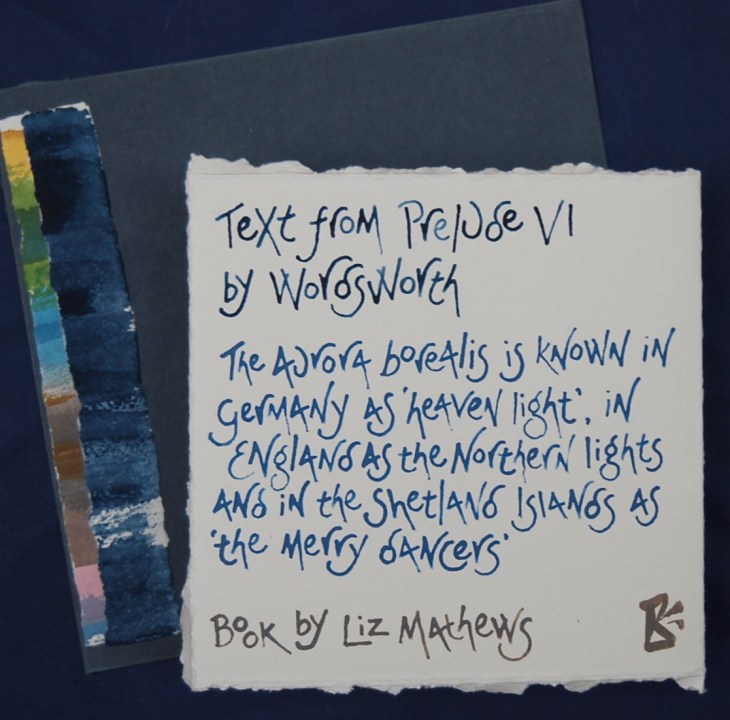 Text from Prelude VI
by Wordsworth
The Aurora borealis is known in
Germany as 'heaven light', in
England as the Northern lights
and in the Shetland Islands as
'the Merry dancers'
Book by Liz Mathews